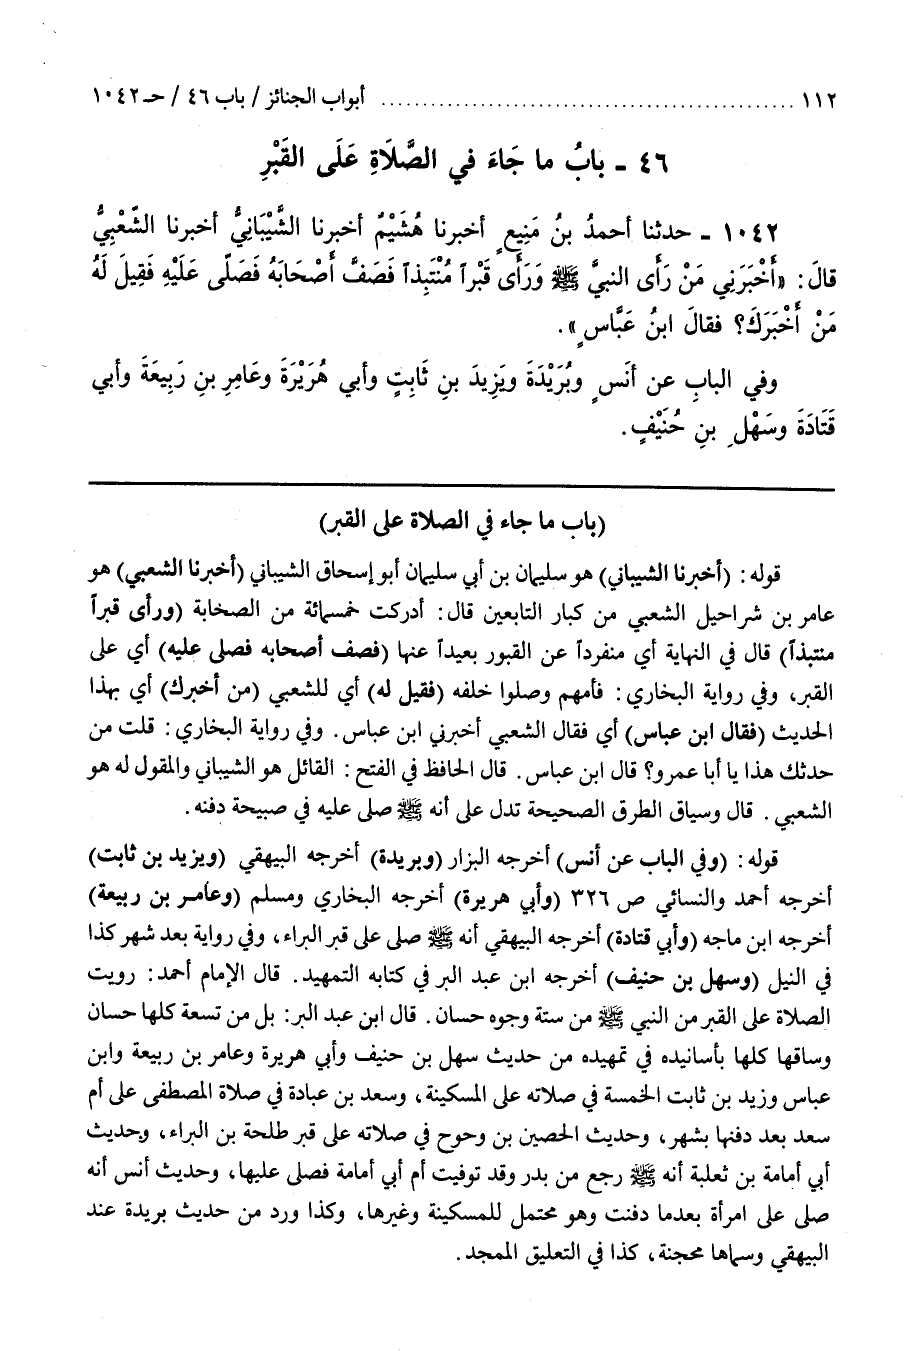 ١١٢ .................................................. أبواب الجنائز / باب ٤٦ / حـ ١٠٤٢
٤٦ ـ بابُ ما جَاءَ في الصَّلاَةِ عَلَى القَبْرِ
١٠٤٢ ـ حدثنا أحمدُ بنُ مَنِيعٍ أخبرنا هُشَيْمٌ أخبرنا الشَّيْبَانِيُّ أخبرنا الشَّعْبِيُّ
قالَ: «أَخْبَرَنِي مَنْ رَأَى النبيَّ ﷺ وَرَأَى قَبْراً مُنْتَبِذاً فَصَفَّ أَصْحَابَهُ فَصَلَّى عَلَيْهِ فَقِيلَ لَهُ
مَنْ أَخْبَرَكَ؟ فقالَ ابنُ عَبَّاسٍ».
وفي البابِ عن أنَسٍ وبُرَيْدَةَ ويَزِيدَ بنِ ثَابِتٍ وأبي هُرَيْرَةَ وعَامِرِ بنِ رَبِيعَةَ وأبي
قَتَادَةَ وسَهْلِ بنِ حُنَيْفٍ.
(باب ما جاء في الصلاة على القبر)
قوله: (أخبرنا الشيباني) هو سليمان بن أبي سليمان أبو إسحاق الشيباني (أخبرنا الشعبي) هو
عامر بن شراحيل الشعبي من كبار التابعين قال: أدركت خمسمائة من الصحابة (ورأى قبراً
منتبذاً) قال في النهاية أي منفرداً عن القبور بعيداً عنها (فصف أصحابه فصلى عليه) أي على
القبر، وفي رواية البخاري: فأمهم وصلوا خلفه (فقيل له) أي للشعبي (من أخبرك) أي بهذا
الحديث (فقال ابن عباس) أي فقال الشعبي أخبرني ابن عباس. وفي رواية البخاري: قلت من
حدثك هذا يا أبا عمرو؟ قال ابن عباس. قال الحافظ في الفتح: القائل هو الشيباني والمقول له هو
الشعبي. قال وسياق الطرق الصحيحة تدل على أنه ﷺ صلى عليه في صبيحة دفنه.
قوله: (وفي الباب عن أنس) أخرجه البزار (وبريدة) أخرجه البيهقي (ويزيد بن ثابت)
أخرجه أحمد والنسائي ص ٣٢٦ (وأبي هريرة) أخرجه البخاري ومسلم (وعامر بن ربيعة)
أخرجه ابن ماجه (وأبي قتادة) أخرجه البيهقي أنه ﷺ صلى على قبر البراء، وفي رواية بعد شهر كذا
في النيل (وسهل بن حنيف) أخرجه ابن عبد البر في كتابه التمهيد. قال الإمام أحمد: رويت
الصلاة على القبر من النبي ﷺ من ستة وجوه حسان. قال ابن عبد البر: بل من تسعة كلها حسان
وساقها كلها بأسانيده في تمهيده من حديث سهل بن حنيف وأبي هريرة وعامر بن ربيعة وابن
عباس وزيد بن ثابت الخمسة في صلاته على المسكينة، وسعد بن عبادة في صلاة المصطفى على أم
سعد بعد دفنها بشهر، وحديث الحصين بن وحوح في صلاته على قبر طلحة بن البراء، وحديث
أبي أمامة بن ثعلبة أنه ﷺ رجع من بدر وقد توفيت أم أبي أمامة فصلى عليها، وحديث أنس أنه
صلى على امرأة بعدما دفنت وهو محتمل للمسكينة وغيرها، وكذا ورد من حديث بريدة عند
البيهقي وسماها محجنة، كذا في التعليق الممجد.